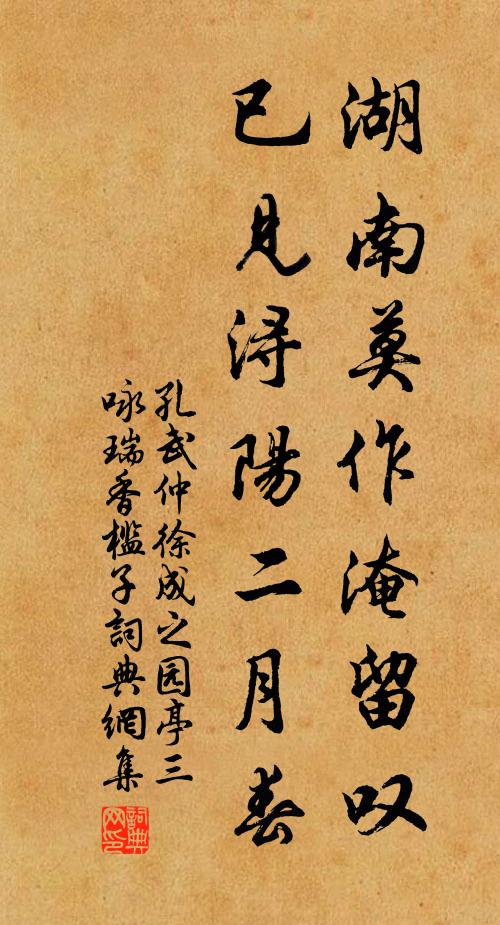 湖南莫作淹留叹
已见浔陽二月春
孔武仲徐成之园亭三
咏瑞香槛子詞典網集
詞典
网印